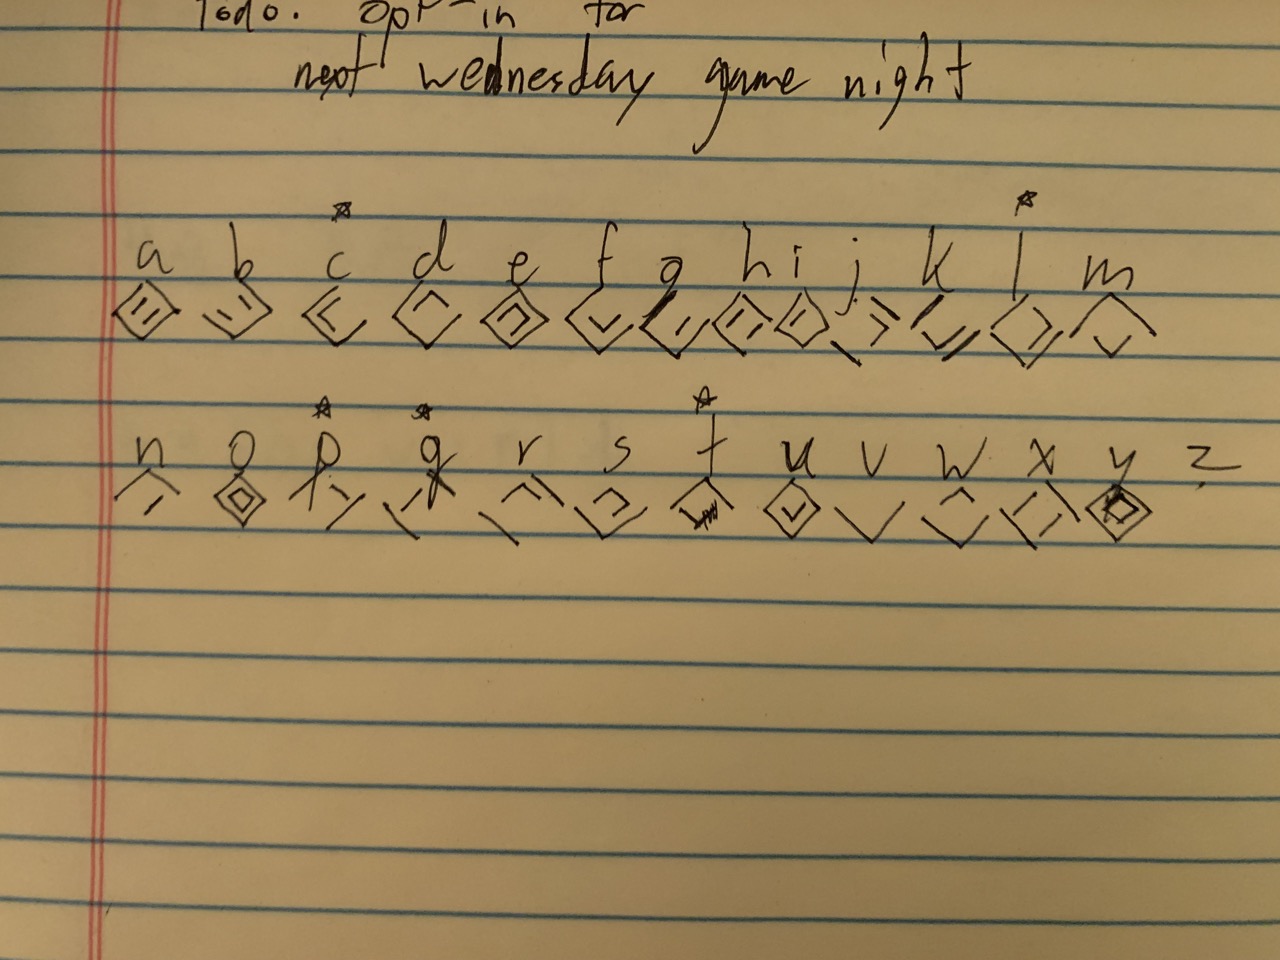 Todo. Opt-in for
next wednesday game night
a b c d e f g h i j k l m
n o p q r s t u v w x y z